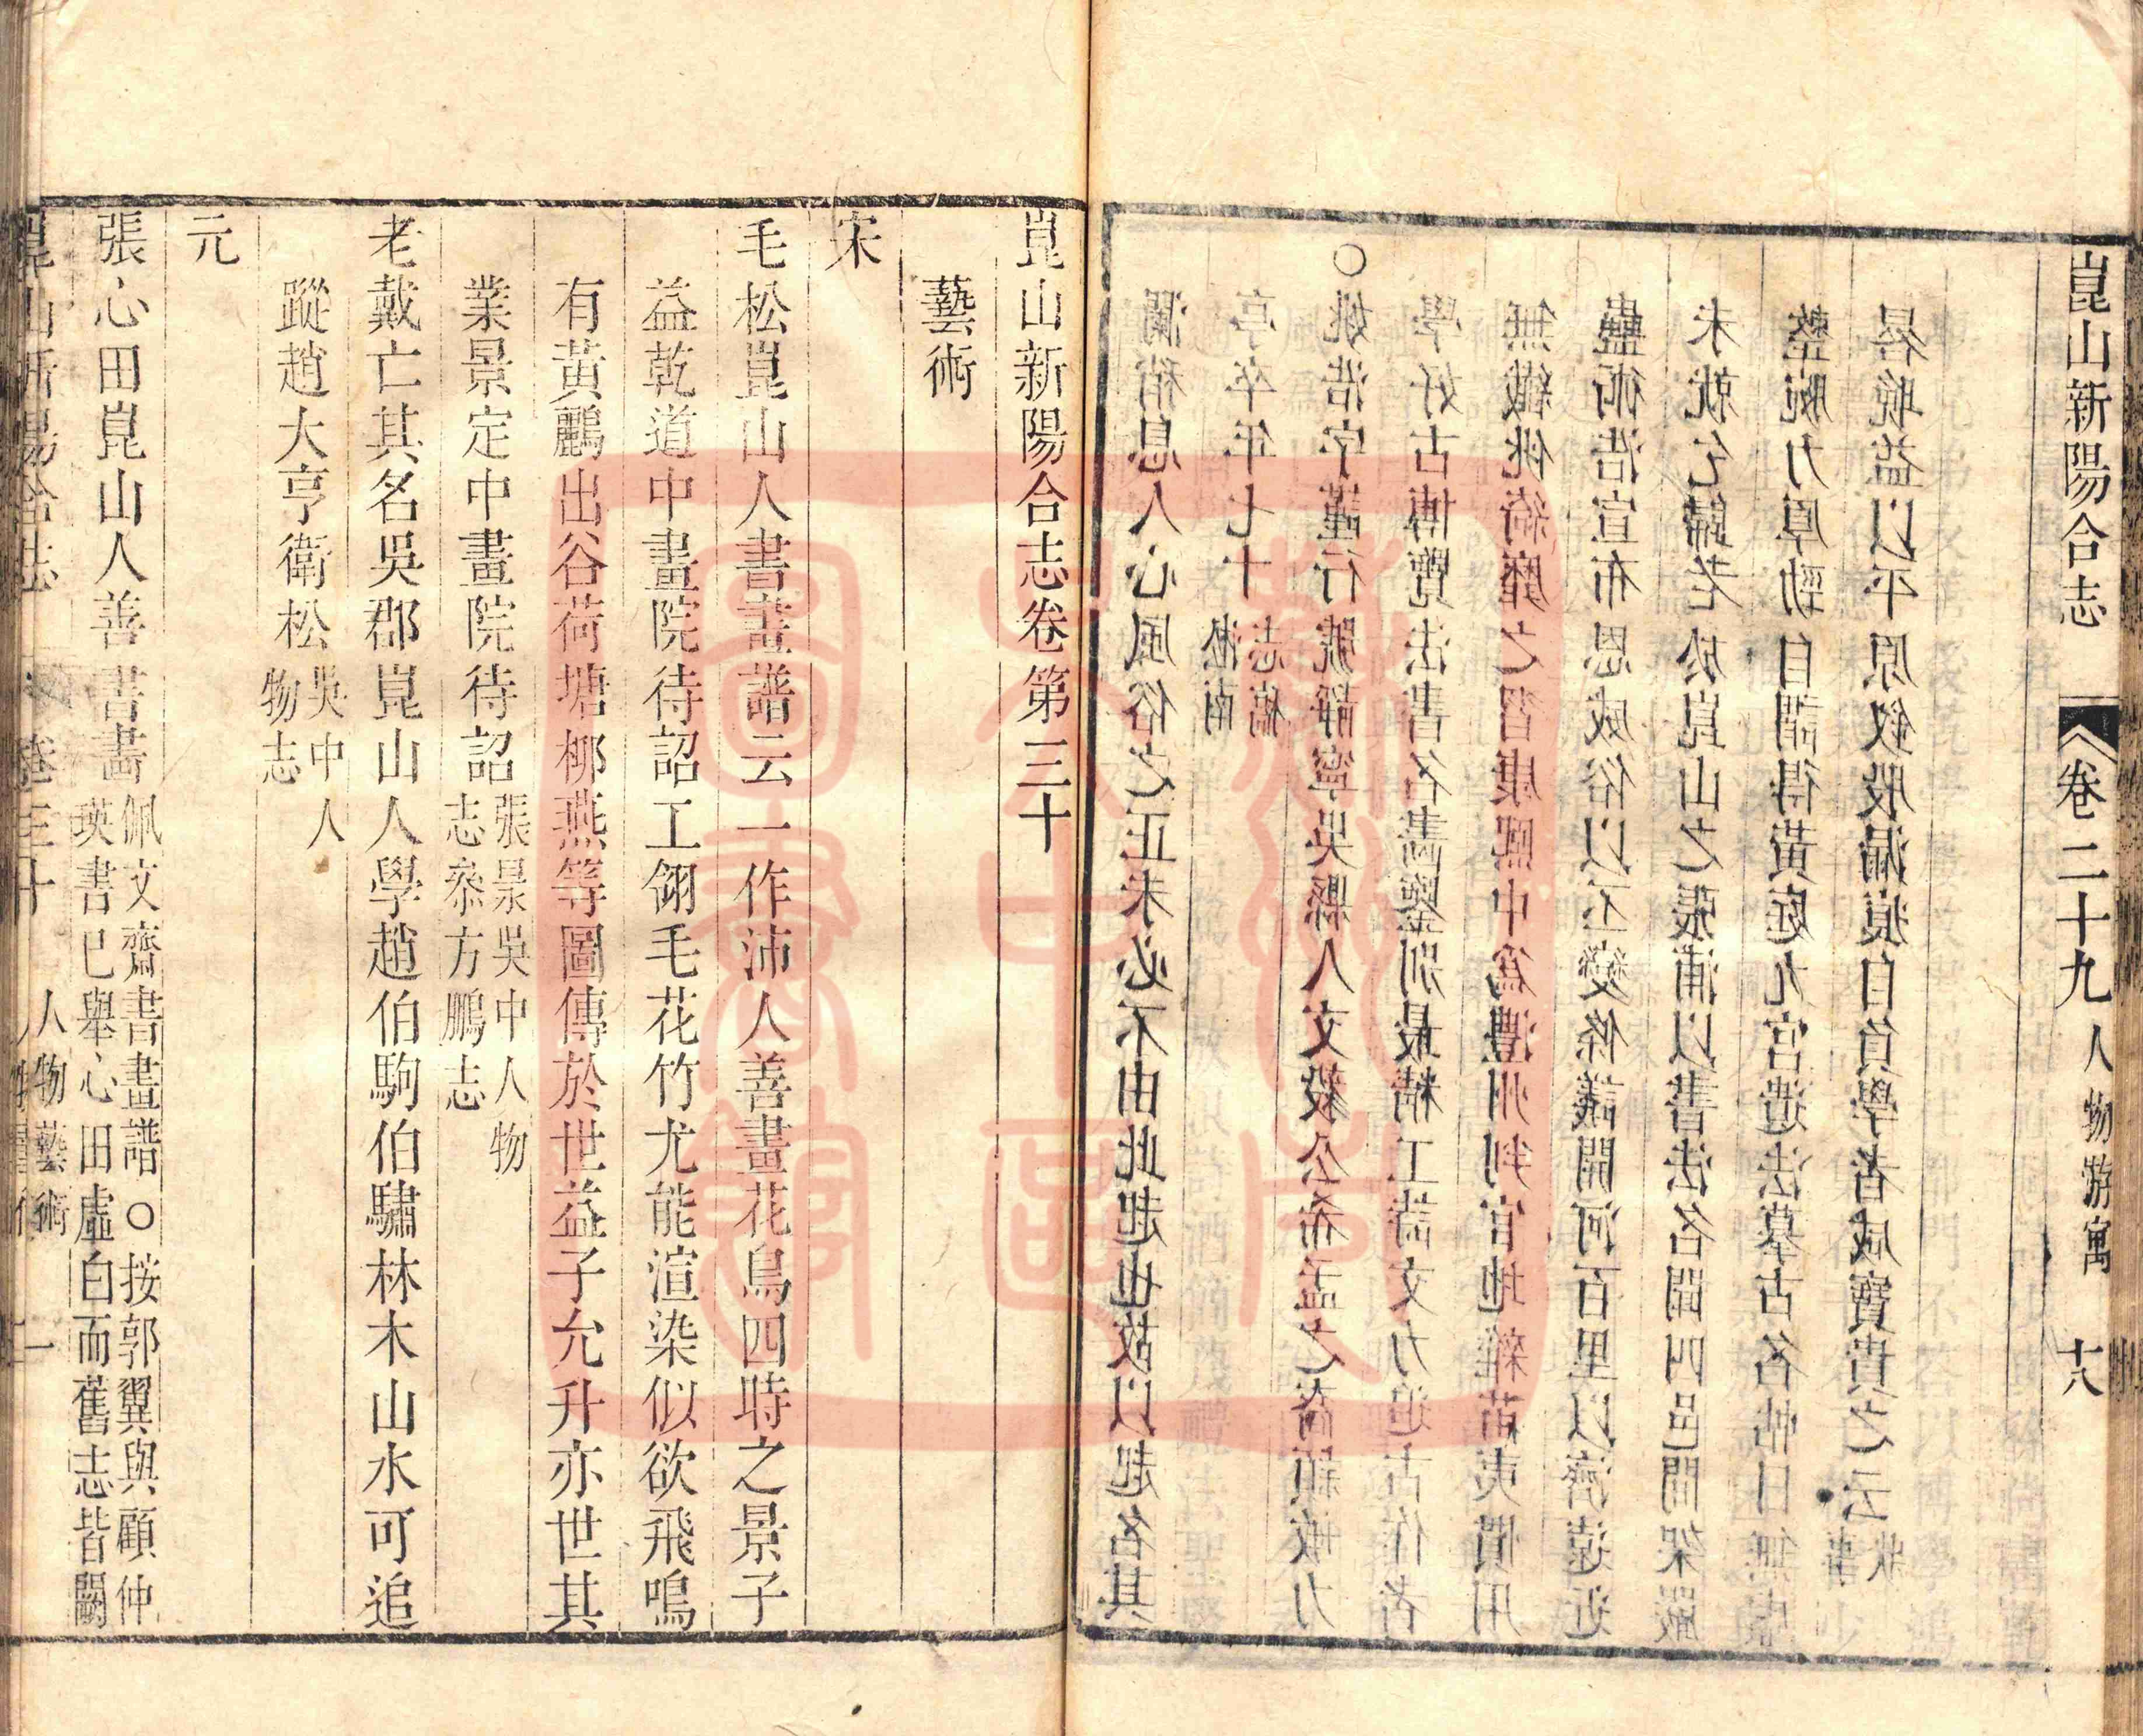 崑山新陽合志 卷二十九 人物游寓 十八
瀾稍息人心風俗之正未必不由此起也故以起名其
亭卒年七十 淞南志稿
○姚浩字謹行號靜寧吳縣人文毅公希孟之裔穎敏力
學好古博覽法書名畫鑒別最精工詩文力追古作者
無纖佻綺靡之習康熙中為澧州判官地雜苗夷慣用
蠱術浩宣布恩威俗以丕變條議開河百里以濟遠近
未就乞歸老於崑山之張浦以書法名聞四邑間架嚴
整腕力厚勁自謂得黃庭九宮遺法摹古名帖日無虛
晷晚益以平原釵股漏痕自負學者咸寶貴之云
崑山新陽合志卷第三十
藝術
宋
毛松崑山人書畫譜云一作沛人善畫花鳥四時之景子
益乾道中畫院待詔工翎毛花竹尤能渲染似欲飛鳴
有黃鸝出谷荷塘柳燕等圖傳於世益子允升亦世其
業景定中畫院待詔 張㬎吳中人物
志叅方鵬志
老戴亡其名吳郡崑山人學趙伯駒伯驌林木山水可追
蹤趙大亨衛松 吳中人
物志
元
張心田崑山人善書畫 佩文齋書畫譜○按郭翼與顧仲
瑛書已舉心田虛白而舊志皆闕
崑山新陽合志 卷三十 人物藝術 一